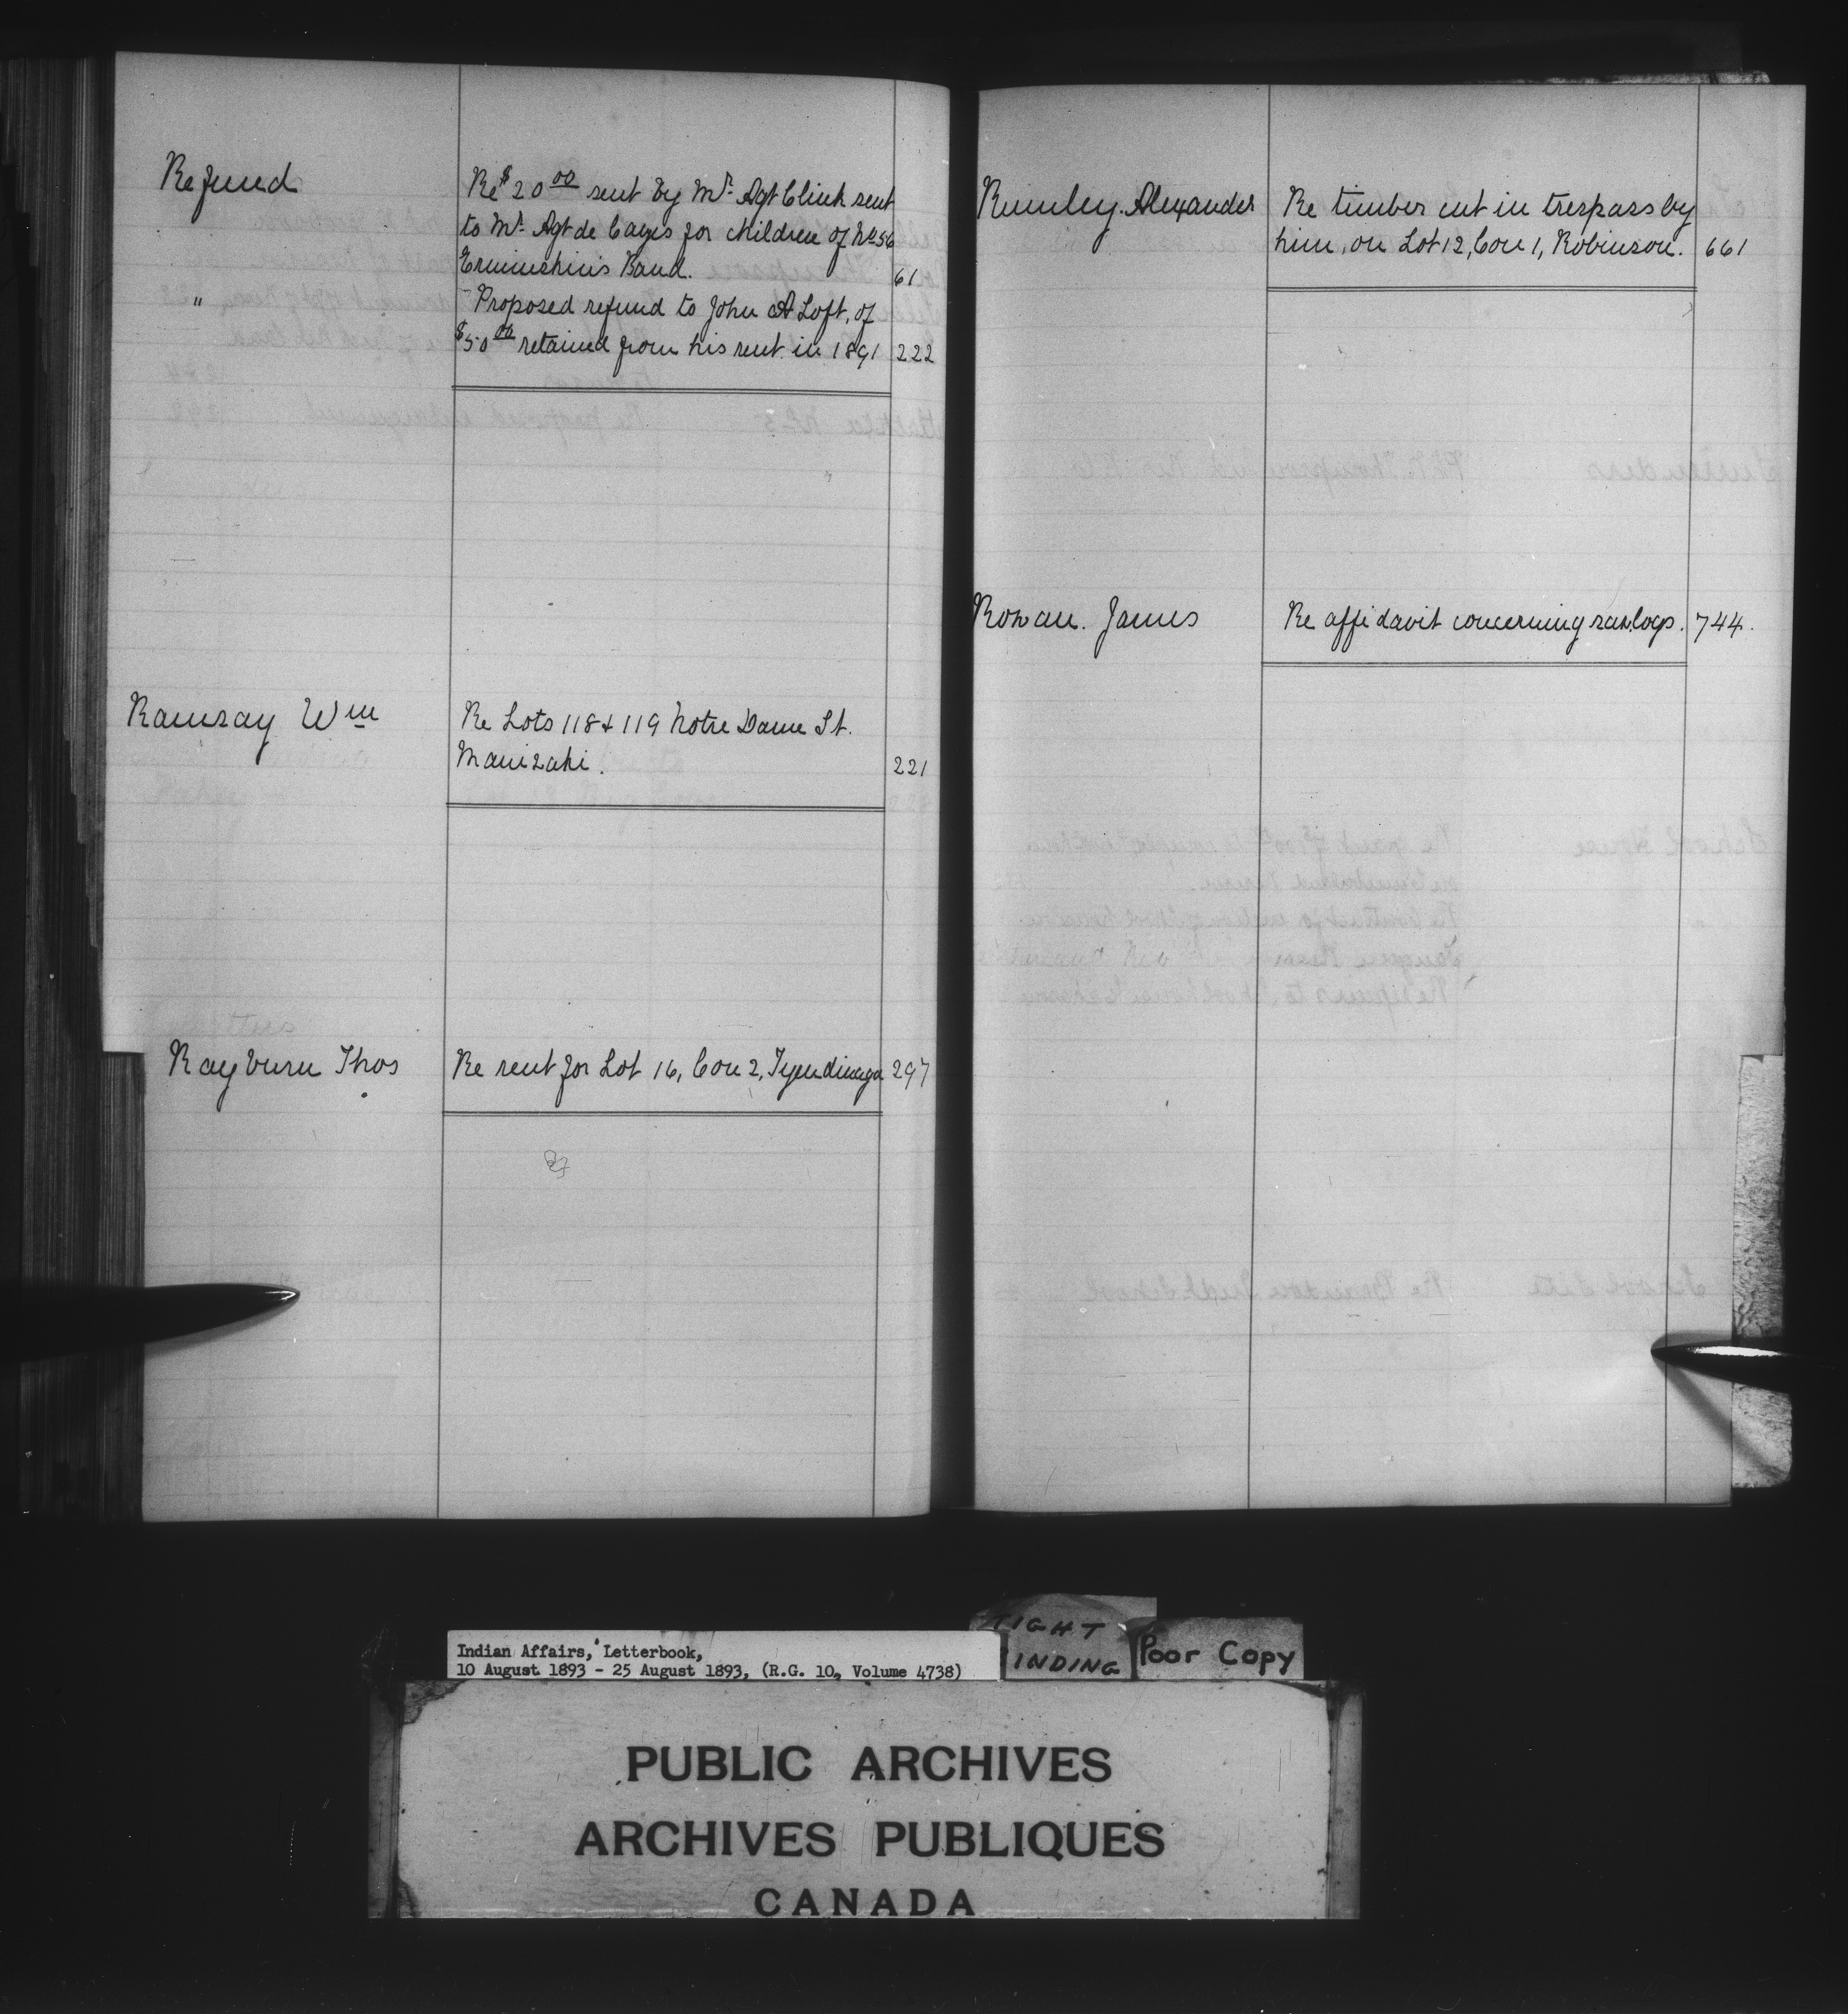 Refund
Re $20 00 sent by Mr. Agt Clink sent
to Mr. Agt de Cazes for children of No 56
Ermineskin's Band. 61
" Proposed refund to John A Loft, of
$50 00 retained from his rent in 1891 222
Ramsay Wm Re Lots 118 & 119 Notre Dame St.
Maniwaki. 221
Rayburn Thos Re rent for Lot 16, Con 2, Tyendinaga 297
Rumley. Alexander Re timber cut in trespass by
him, on Lot 12, Con 1, Robinson. 661
Rowan. James Re affidavit concerning sawlogs. 744.
Indian Affairs, Letterbook,
10 August 1893 - 25 August 1893, (R.G. 10, Volume 4738)
TIGHT
INDING
Poor Copy
PUBLIC ARCHIVES
ARCHIVES PUBLIQUES
CANADA